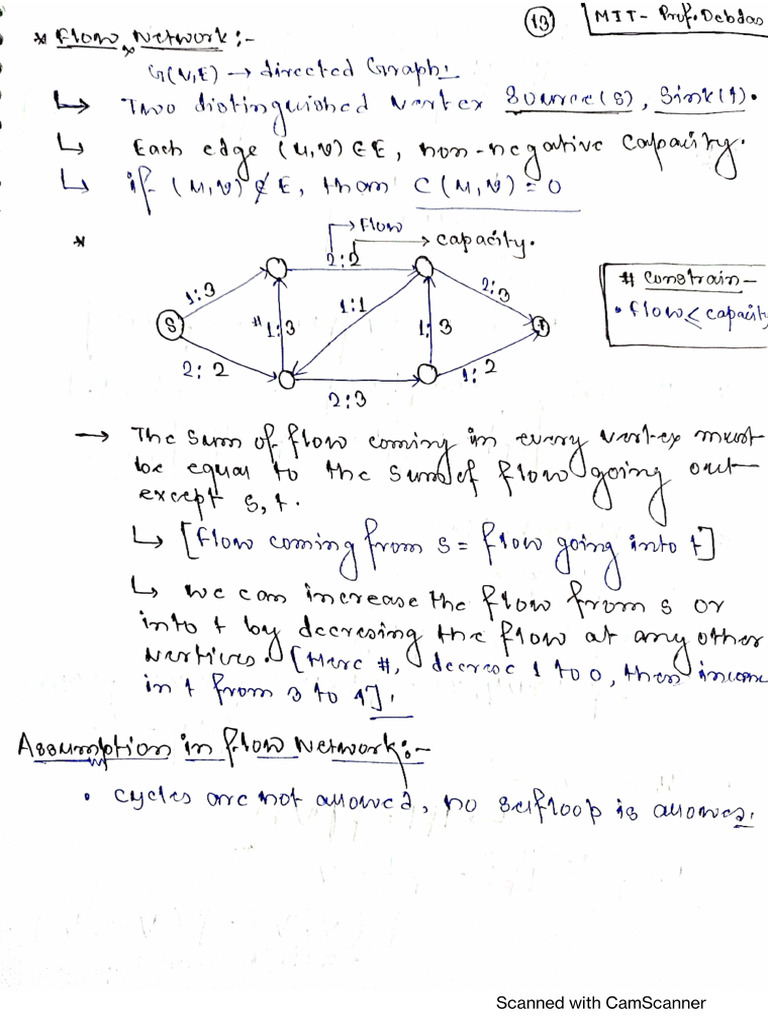 13
MIT- Prof. Debdas
* Flow Network:-
G(V,E) → directed Graph.
↳ Two distinguished vertex Source(s), Sink(t).
↳ Each edge (u,v) ∈ E, non-negative capacity.
↳ if (u,v) ∉ E, than C(u,v) = 0
* → Flow
→ capacity.
2:2
1:3
2:3
1:1
# 1:3
1:3
S
t
2:2
1:2
2:3
# Constrain-
• flow ≤ capacity
→ The sum of flow coming in every vertex must
be equal to the sum of flow going out
except s, t.
↳ [Flow coming from s = flow going into t]
↳ we can increase the flow from s or
into t by decresing the flow at any other
vertices. [Here #, 1 to 0, then
in t from 3 to 4].
Assumption in flow Network:-
• cycles are not allowed, no selfloop is allowed.
Scanned with CamScanner